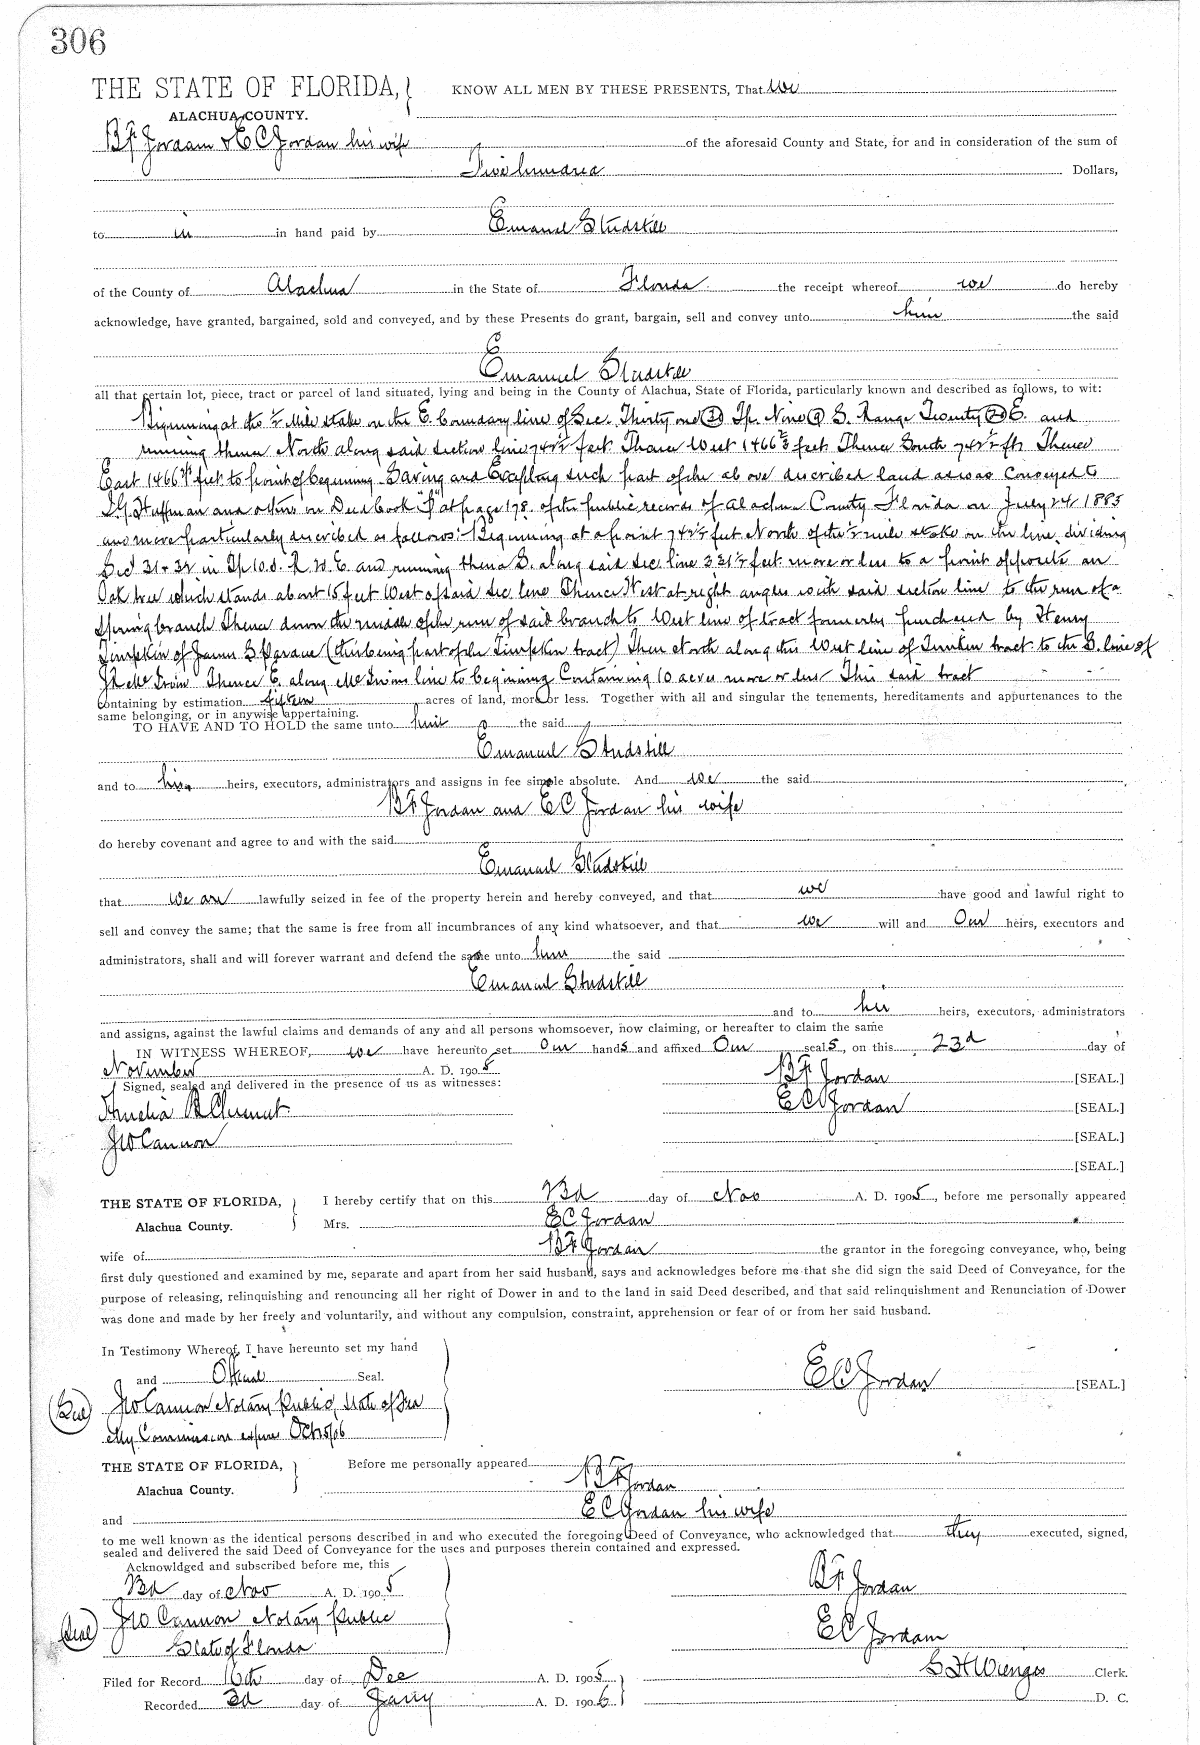 306
THE STATE OF FLORIDA, KNOW ALL MEN BY THESE PRESENTS, That we
ALACHUA COUNTY.
B F Jordan & E C Jordan his wife of the aforesaid County and State, for and in consideration of the sum of
Five hundred Dollars,
to us in hand paid by Emanuel Studstill
of the County of Alachua in the State of Florida the receipt whereof we do hereby
acknowledge, have granted, bargained, sold and conveyed, and by these Presents do grant, bargain, sell and convey unto him the said
Emanuel Studstill
all that certain lot, piece, tract or parcel of land situated, lying and being in the County of Alachua, State of Florida, particularly known and described as follows, to wit:
Beginning at the ½ mile stake on the E. boundary line of Sec. Thirty one (31) Tp. Nine (9) S. Range Twenty (20) E. and
running thence North along said section line 742½ feet Thence West 1466⅔ feet Thence South 742½ ft Thence
East 1466⅔ feet to point of beginning. Saving and Excepting such part of the above described land as was conveyed to
Huffman and others in Deed book "P" at page 178. of the public records of Alachua County Florida on July 24 1885
and more particularly described as follows: Beginning at a point 742½ feet North of the ½ mile stake on the line dividing
Sec 31 & 32 in Tp 10. S. R. E. and running thence S. along said sec line 331½ feet more or less to a point opposite an
Oak tree which stands about 15 feet West of said sec line Thence West at right angles with said section line to the run of a
Spring branch Thence down the middle of the run of said branch to West line of tract formerly purchased by Henry
Simpkin of James (this being part of the Simpkin tract) Then North along the West line of tract to the S. line of
Thence E. along line to beginning Containing 10 acres more or less This said tract
containing by estimation fifteen acres of land, more or less. Together with all and singular the tenements, hereditaments and appurtenances to the
same belonging, or in anywise appertaining.
TO HAVE AND TO HOLD the same unto him the said
Emanuel Studstill
and to his heirs, executors, administrators and assigns in fee simple absolute. And we the said
B F Jordan and E C Jordan his wife
do hereby covenant and agree to and with the said
Emanuel Studstill
that we are lawfully seized in fee of the property herein and hereby conveyed, and that we have good and lawful right to
sell and convey the same; that the same is free from all incumbrances of any kind whatsoever, and that we will and Our heirs, executors and
administrators, shall and will forever warrant and defend the same unto him the said
Emanuel Studstill
and to his heirs, executors, administrators
and assigns, against the lawful claims and demands of any and all persons whomsoever, now claiming, or hereafter to claim the same
IN WITNESS WHEREOF, we have hereunto set Our hands and affixed Our seals, on this 23d day of
November A. D. 1905
Signed, sealed and delivered in the presence of us as witnesses: B F Jordan [SEAL.]
Amelia E C Jordan [SEAL.]
J W Cannon [SEAL.]
[SEAL.]
THE STATE OF FLORIDA, I hereby certify that on this 23d day of Nov A. D. 1905, before me personally appeared
Alachua County. Mrs. E C Jordan
wife of B F Jordan the grantor in the foregoing conveyance, who, being
first duly questioned and examined by me, separate and apart from her said husband, says and acknowledges before me that she did sign the said Deed of Conveyance, for the
purpose of releasing, relinquishing and renouncing all her right of Dower in and to the land in said Deed described, and that said relinquishment and Renunciation of Dower
was done and made by her freely and voluntarily, and without any compulsion, constraint, apprehension or fear of or from her said husband.
In Testimony Whereof, I have hereunto set my hand
and Official Seal. E C Jordan [SEAL.]
(Seal) J W Cannon Notary Public State of Fla
My Commission expires Oct 15/06
THE STATE OF FLORIDA, Before me personally appeared B F Jordan
Alachua County.
and E C Jordan his wife
to me well known as the identical persons described in and who executed the foregoing Deed of Conveyance, who acknowledged that they executed, signed,
sealed and delivered the said Deed of Conveyance for the uses and purposes therein contained and expressed.
Acknowldged and subscribed before me, this
23d day of Nov A. D. 1905 B F Jordan
(Seal) J W Cannon Notary Public E C Jordan
State of Florida
Filed for Record 16th day of Dec A. D. 1905 S H Wienges Clerk.
Recorded 3d day of Jany A. D. 1906 D. C.